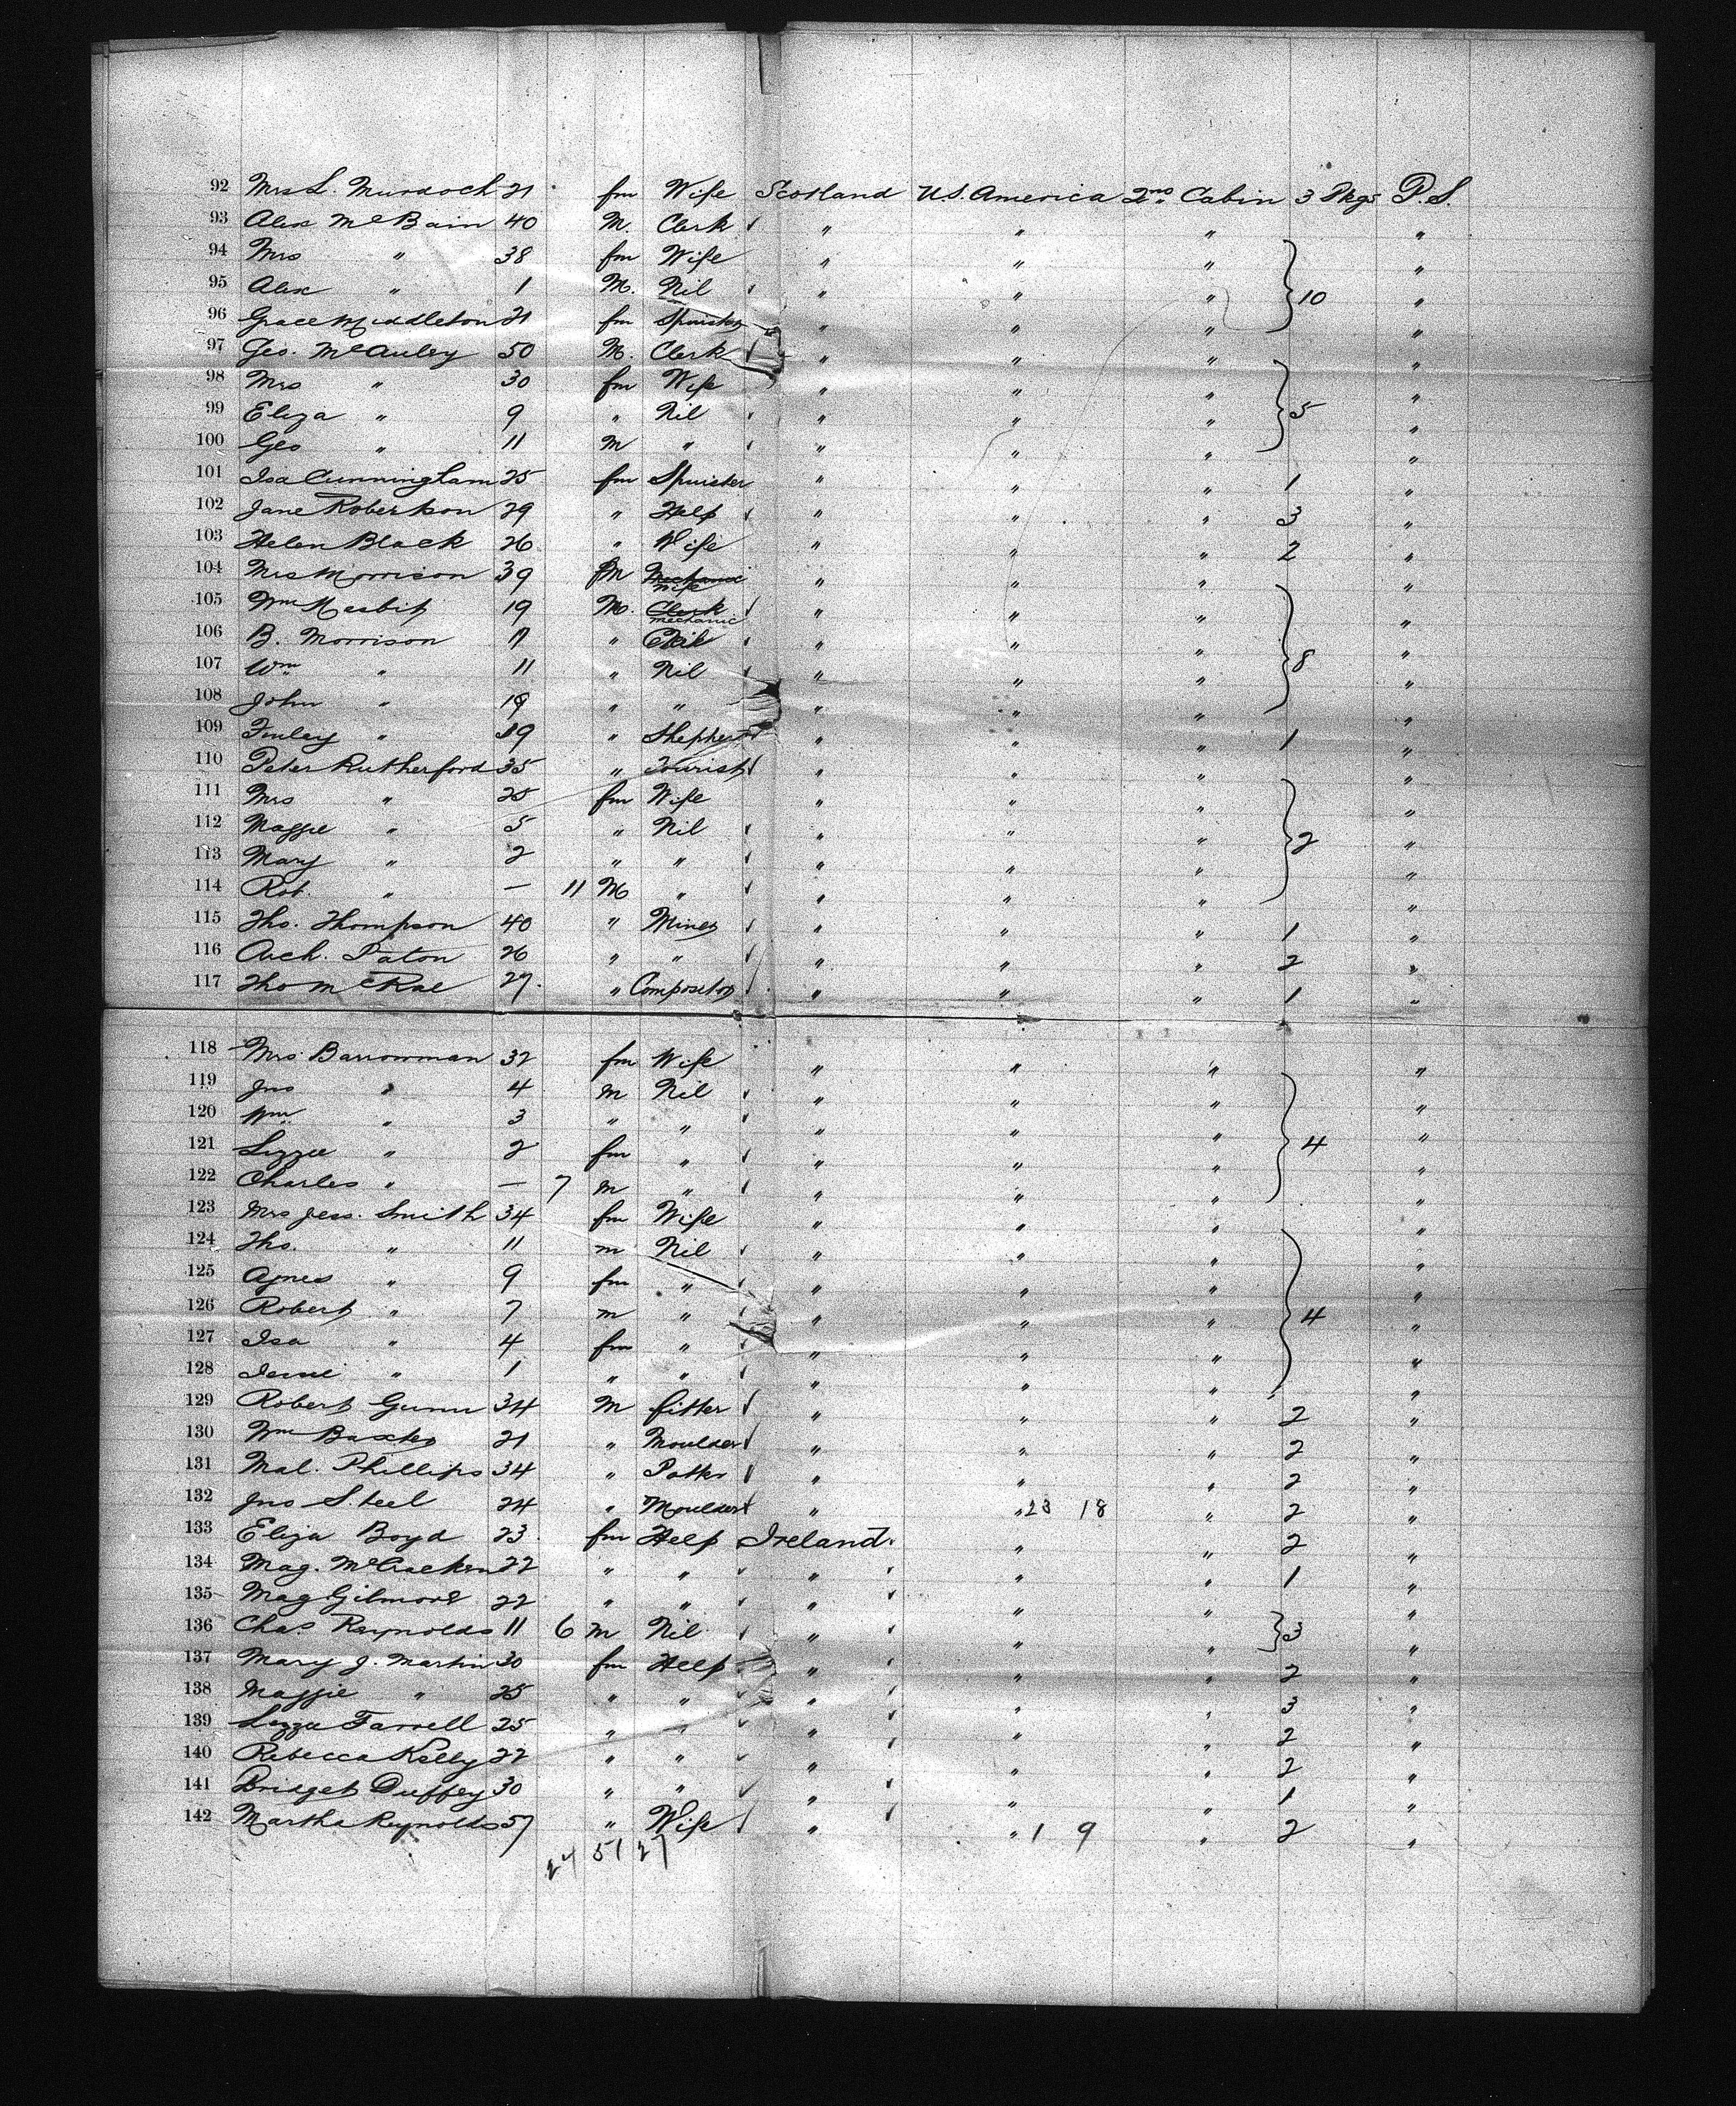 92 Mrs L. Murdoch 21 fm Wife Scotland U.S. America 2nd Cabin 3 Pkgs P.S.
93 Alex McBain 40 M. Clerk " " " "
94 Mrs " 38 fm Wife " " " "
95 Alex " 1 M. Nil " " " 10 "
96 Grace Middleton 21 fm Spinster " " " "
97 Geo. McAuley 50 M. Clerk " " " "
98 Mrs " 30 fm Wife " " " "
99 Eliza " 9 " Nil " " " 5 "
100 Geo " 11 m " " " " "
101 Isa Cunningham 25 fm Spinster " " " 1 "
102 Jane Robertson 29 " Help " " " 3 "
103 Helen Black 26 " Wife " " " 2 "
104 Mrs Morrison 39 fm Mechanic Wife " " " "
105 Wm Nesbit 19 M. Clerk mechanic " " " "
106 B. Morrison " " " " "
107 Wm " 11 " Nil " " " 8 "
108 John " " " " " " "
109 Finley " 19 " Shepherd " " " 1 "
110 Peter Rutherford 35 " Tourist " " " "
111 Mrs " 25 fm Wife " " " "
112 Maggie " 5 " Nil " " " "
113 Mary " 2 " " " " " 2 "
114 Rob. " — 11 M " " " " "
115 Tho. Thompson 40 " Miner " " " 1 "
116 Arch. Paton 26 " " " " " 2 "
117 Tho McRae 27. " Compositor " " " 1 "
118 Mrs Barrowman 32 fm Wife " " " "
119 Jno " 4 m Nil " " " "
120 Wm " 3 " " " " " "
121 Lizzie " 2 fm " " " " 4 "
122 Charles " — 7 m " " " " "
123 Mrs Jess. Smith 34 fm Wife " " " "
124 Tho. " 11 m Nil " " " "
125 Agnes " 9 fm " " " " "
126 Robert " 7 m " " " " 4 "
127 Isa " 4 fm " " " " "
128 " 1 " " " " " "
129 Robert Gunn 34 M fitter " " " 2 "
130 Wm Baxter 21 " Moulder " " " 2 "
131 Mal. Phillips 34 " Potter " " " 2 "
132 Jno Steel 24 " Moulder " " 23 18 " 2 "
133 Eliza Boyd 23. fm Help Ireland. " " 2 "
134 Mag. McCracken 22 " " " " " 1 "
135 Mag Gilmore 22 " " " " " "
136 Chas Reynolds 11 6 m Nil " " " 3 "
137 Mary J. Martin 30 fm Help " " " 2 "
138 Maggie " 25 " " " " " 3 "
139 Lizzie Farrell 25 " " " " " 2 "
140 Rebecca Kelly 22 " " " " " 2 "
141 Bridget Duffey 30 " " " " " 1 "
142 Martha Reynolds 57 " Wife " " 1 9 " 2 "
24 51 27